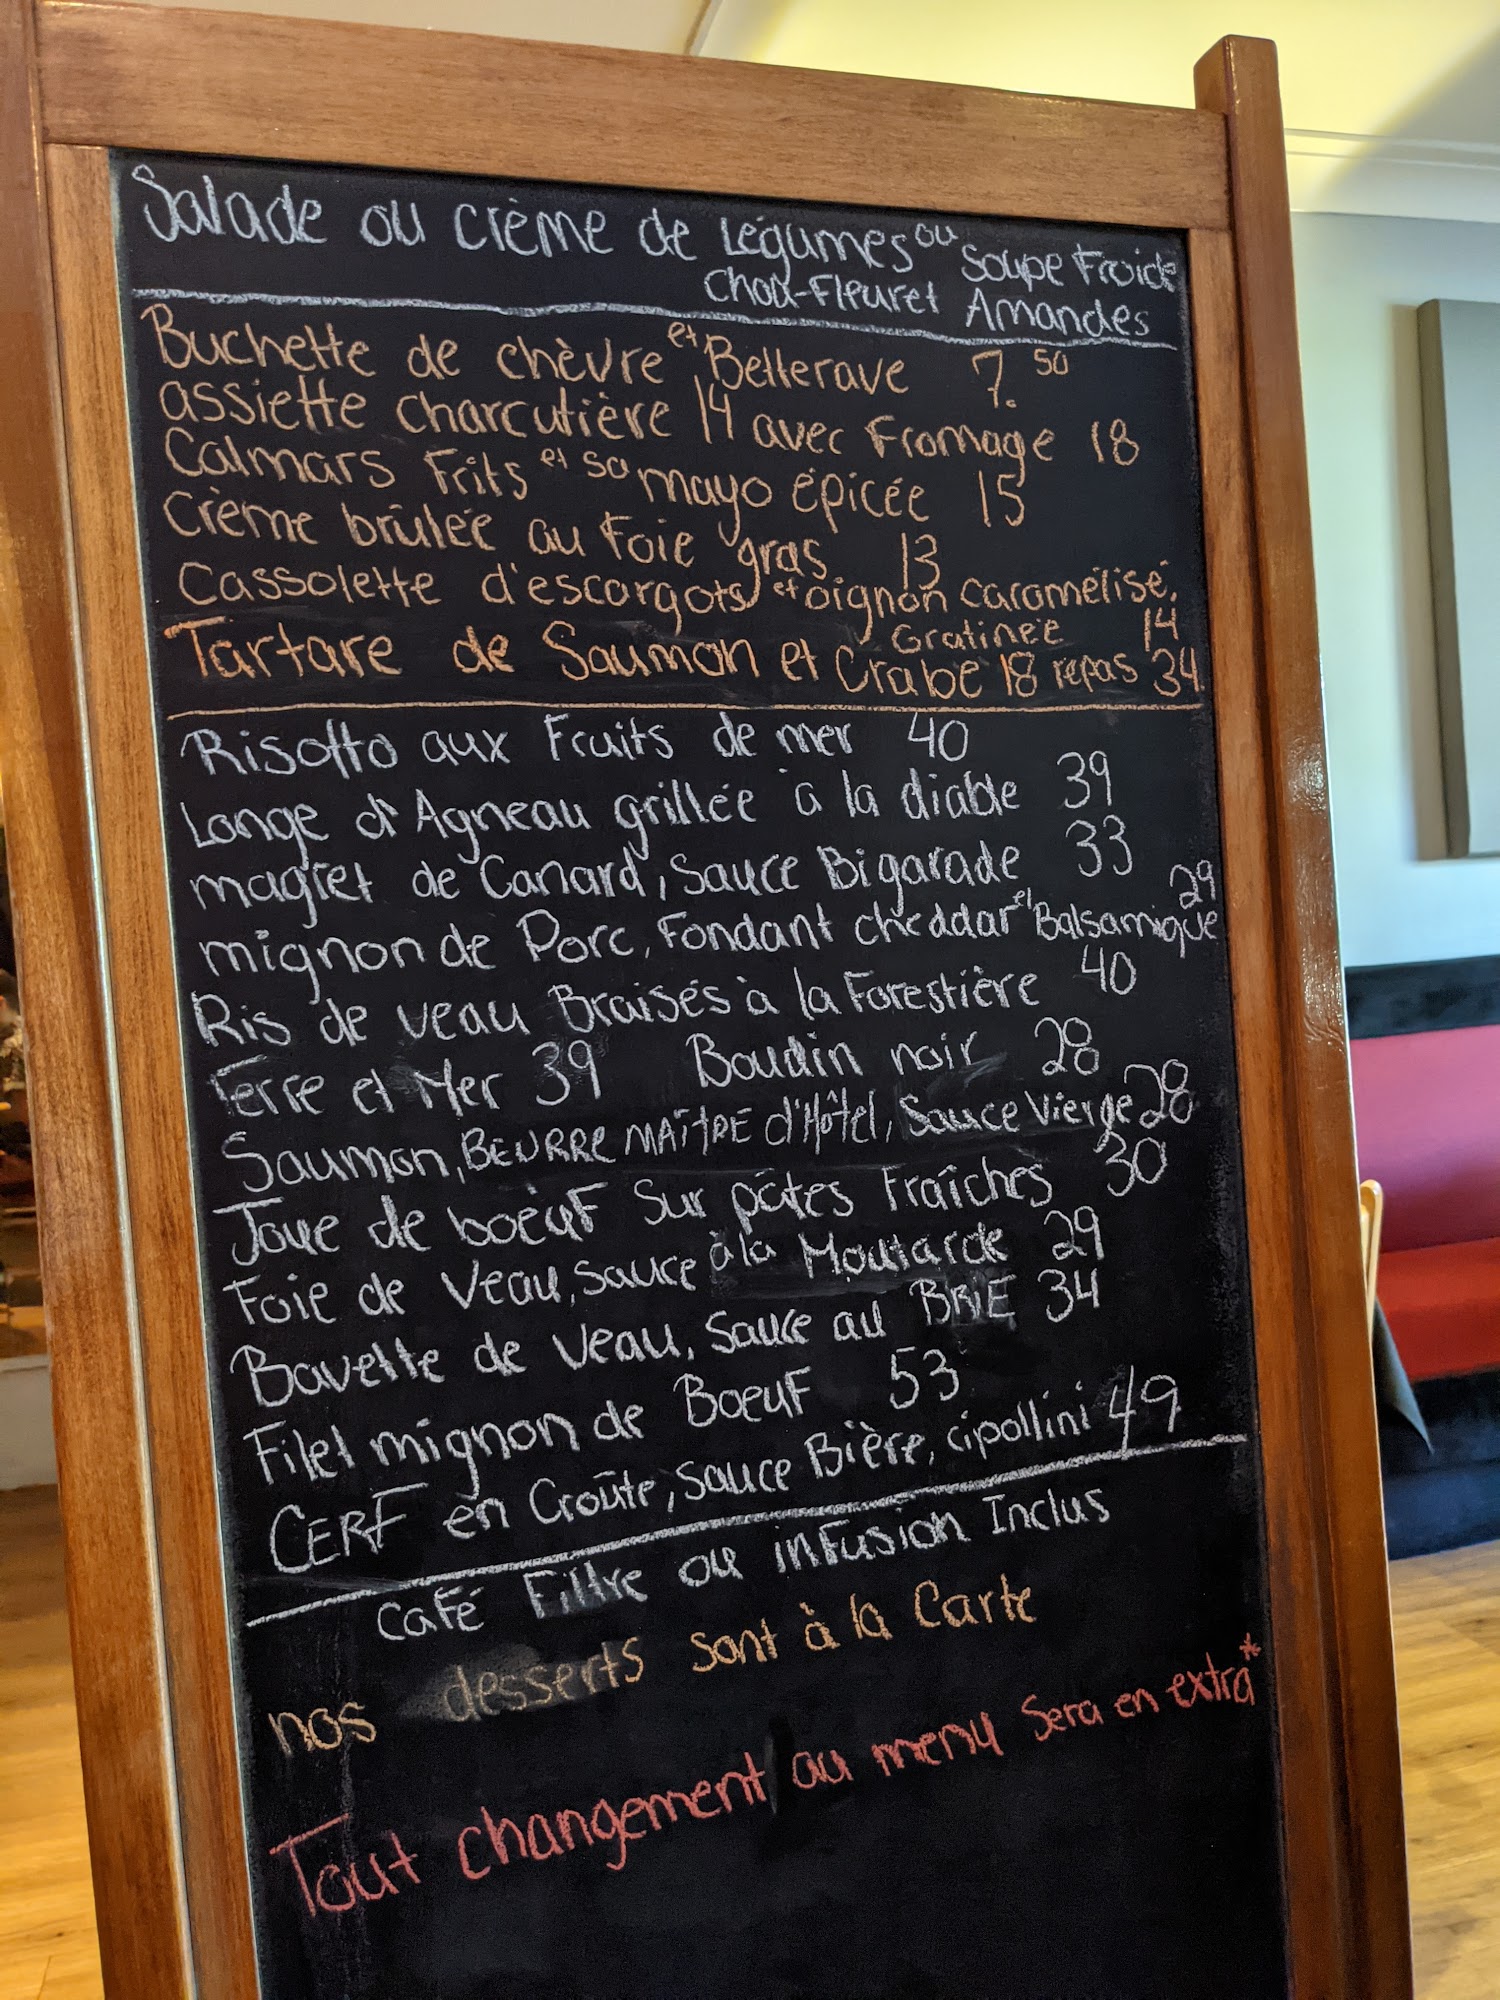 Salade ou crème de Légumes ou Soupe Froide
Choux-Fleuret Amandes
Buchette de chèvre et Betterave 7.50
assiette charcutière 14 avec Fromage 18
Calmars Frits et sa mayo épicée 15
Crème brûlée au Foie gras 13
Cassolette d'escargots et oignon caramélisé,
Gratinée 14
Tartare de Saumon et Crabe 18 repas 34
Risotto aux Fruits de mer 40
Longe d'Agneau grillée à la diable 39
magret de Canard, Sauce Bigarade 33
mignon de Porc, Fondant cheddar et Balsamique 29
Ris de veau Braisés à la Forestière 40
Terre et Mer 39 Boudin noir 28
Saumon, BEURRE MAÎTRE d'Hôtel, Sauce Vierge 28
Joue de boeuf Sur pâtes Fraîches 30
Foie de Veau, Sauce à la Moutarde 29
Bavette de Veau, Sauce au BRIE 34
Filet mignon de Boeuf 53
CERF en Croûte, Sauce Bière, cipollini 49
Café Filtre ou infusion Inclus
nos desserts sont à la Carte
Tout changement au menu Sera en extra*